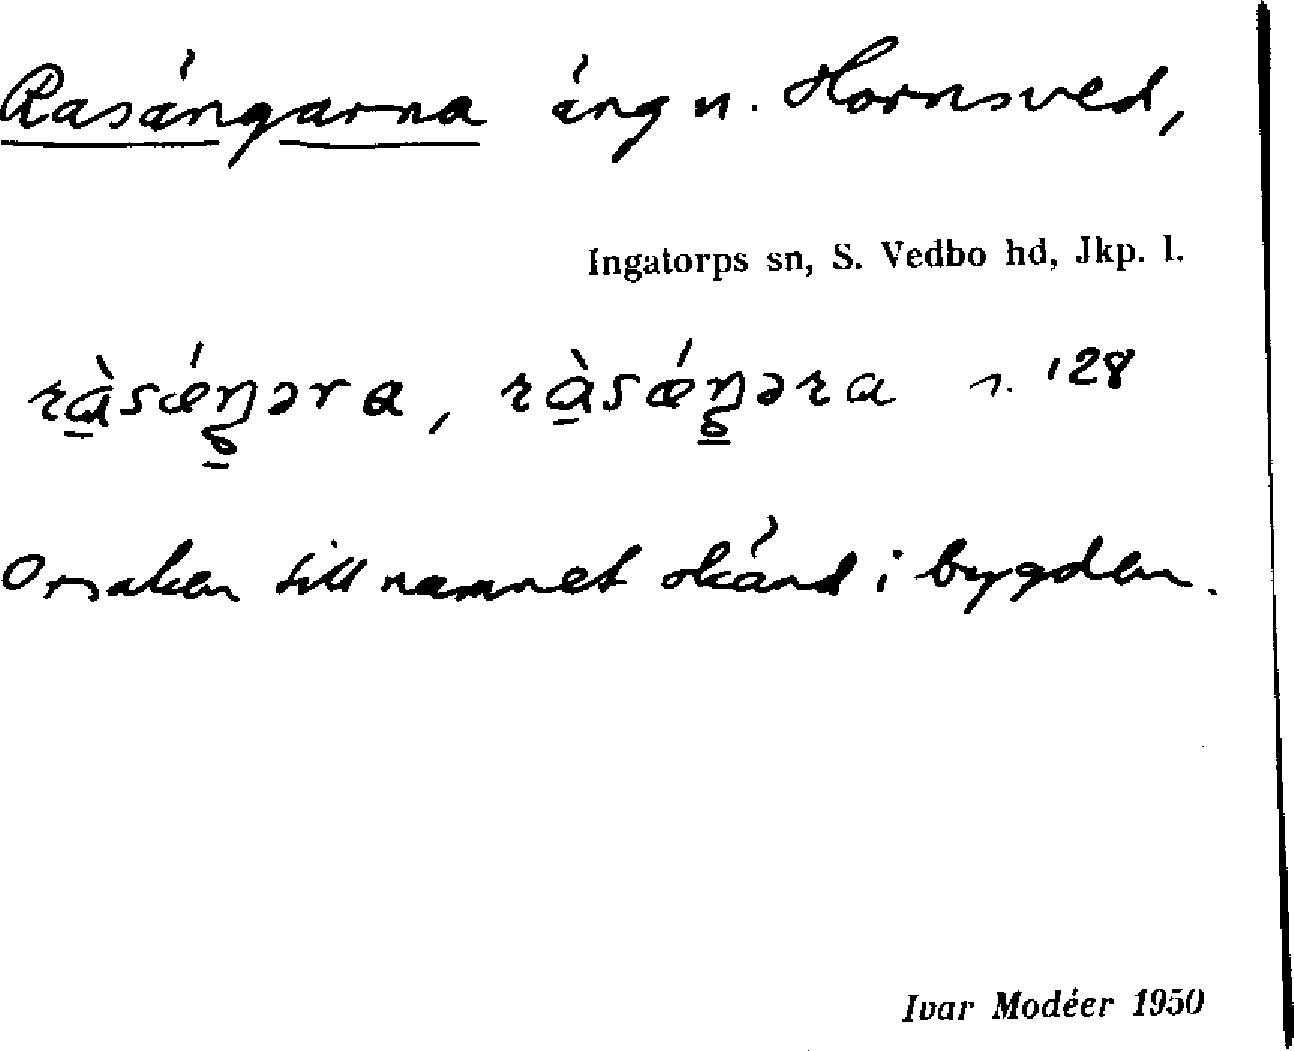 Rasängarna äng n. Hornsved,
Ingatorps sn, S. Vedbo hd, Jkp. l.
ràsǽŋəra, ràsǽŋəra n. '28
Orsaken till namnet okänd i bygden.
Ivar Modéer 1950